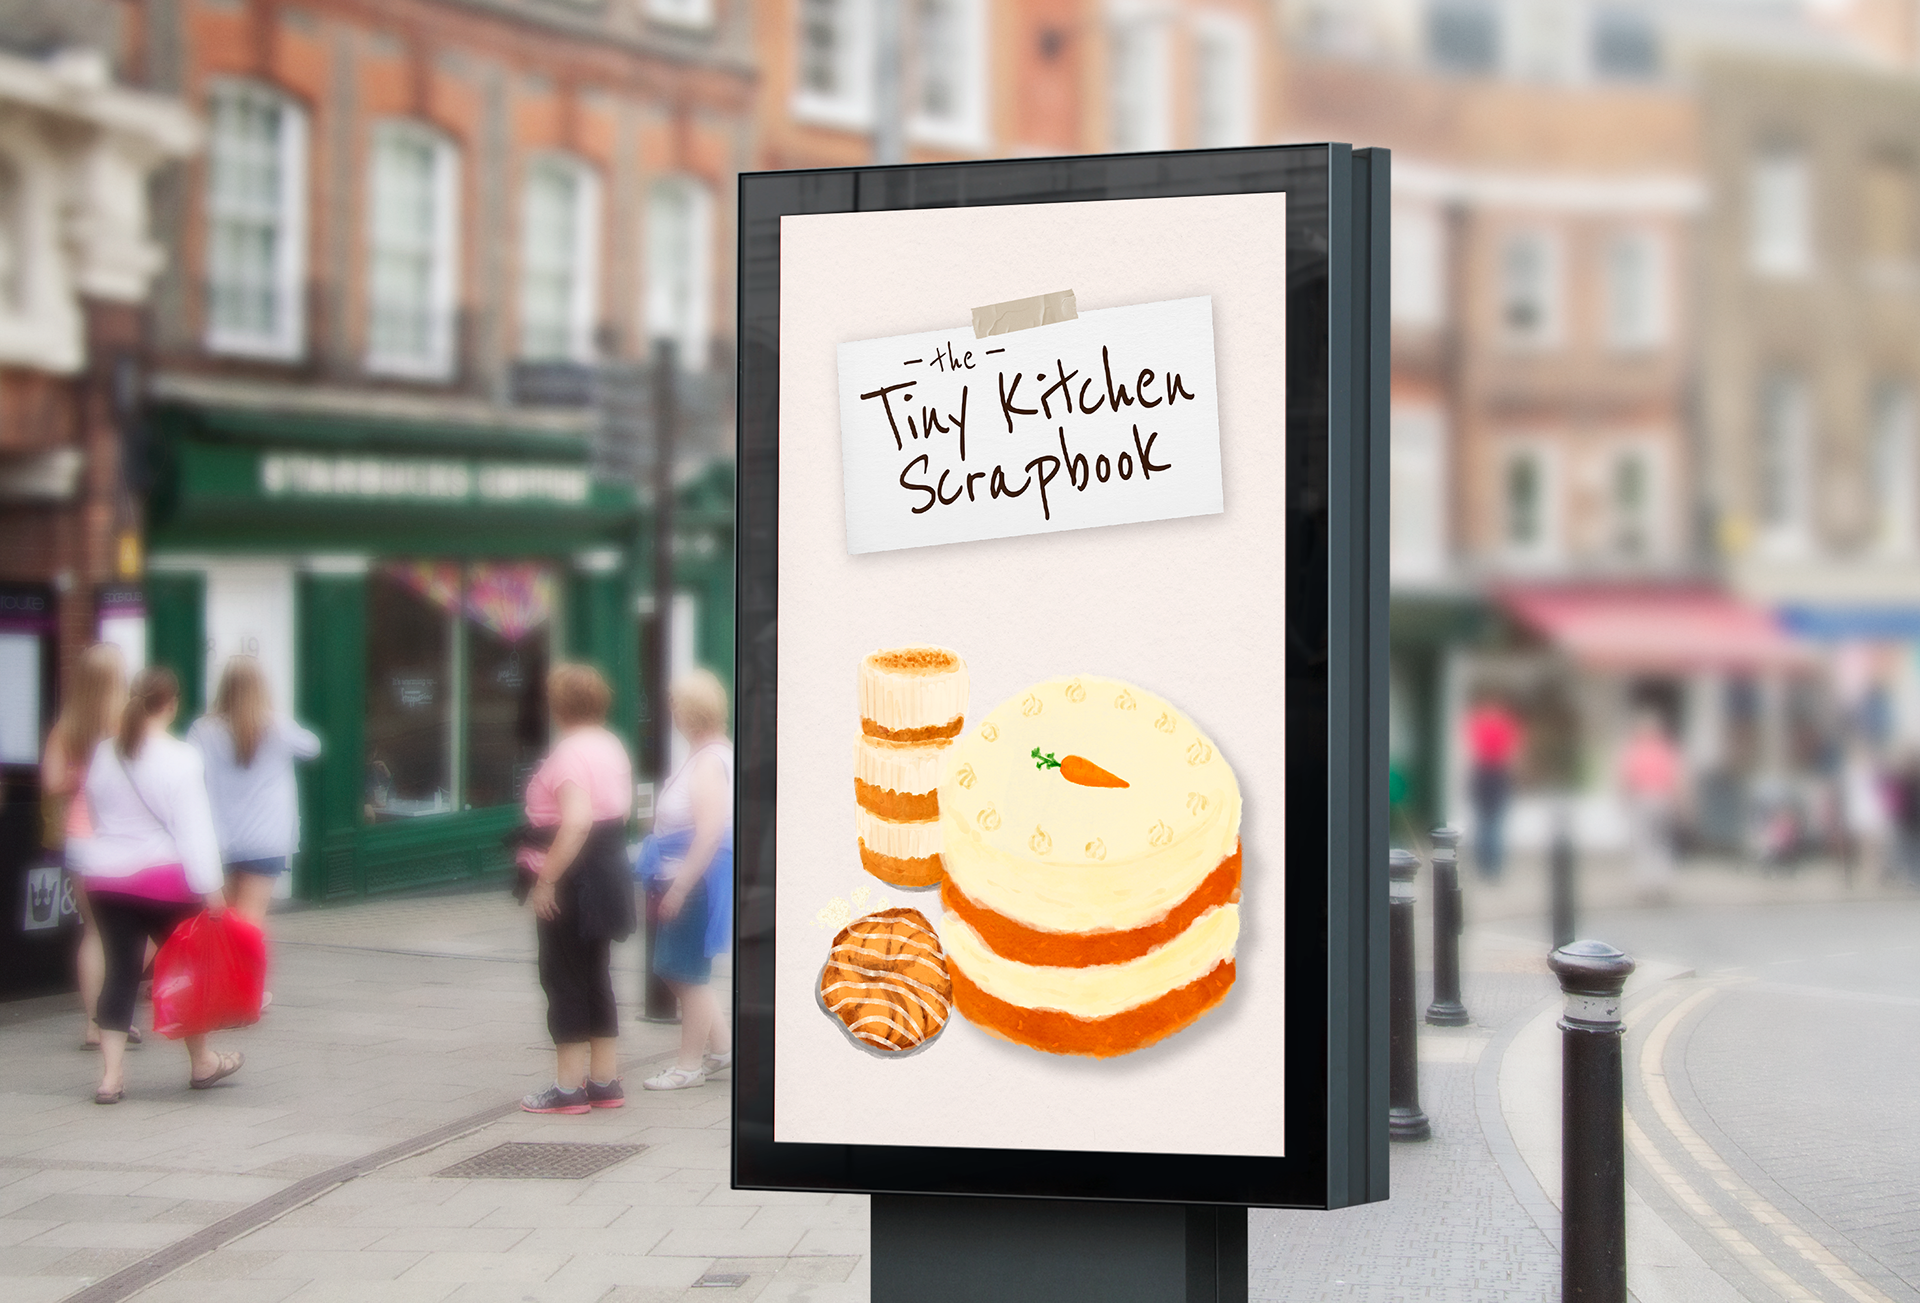 - the -
Tiny Kitchen
Scrapbook
STARBUCKS COFFEE
route
&